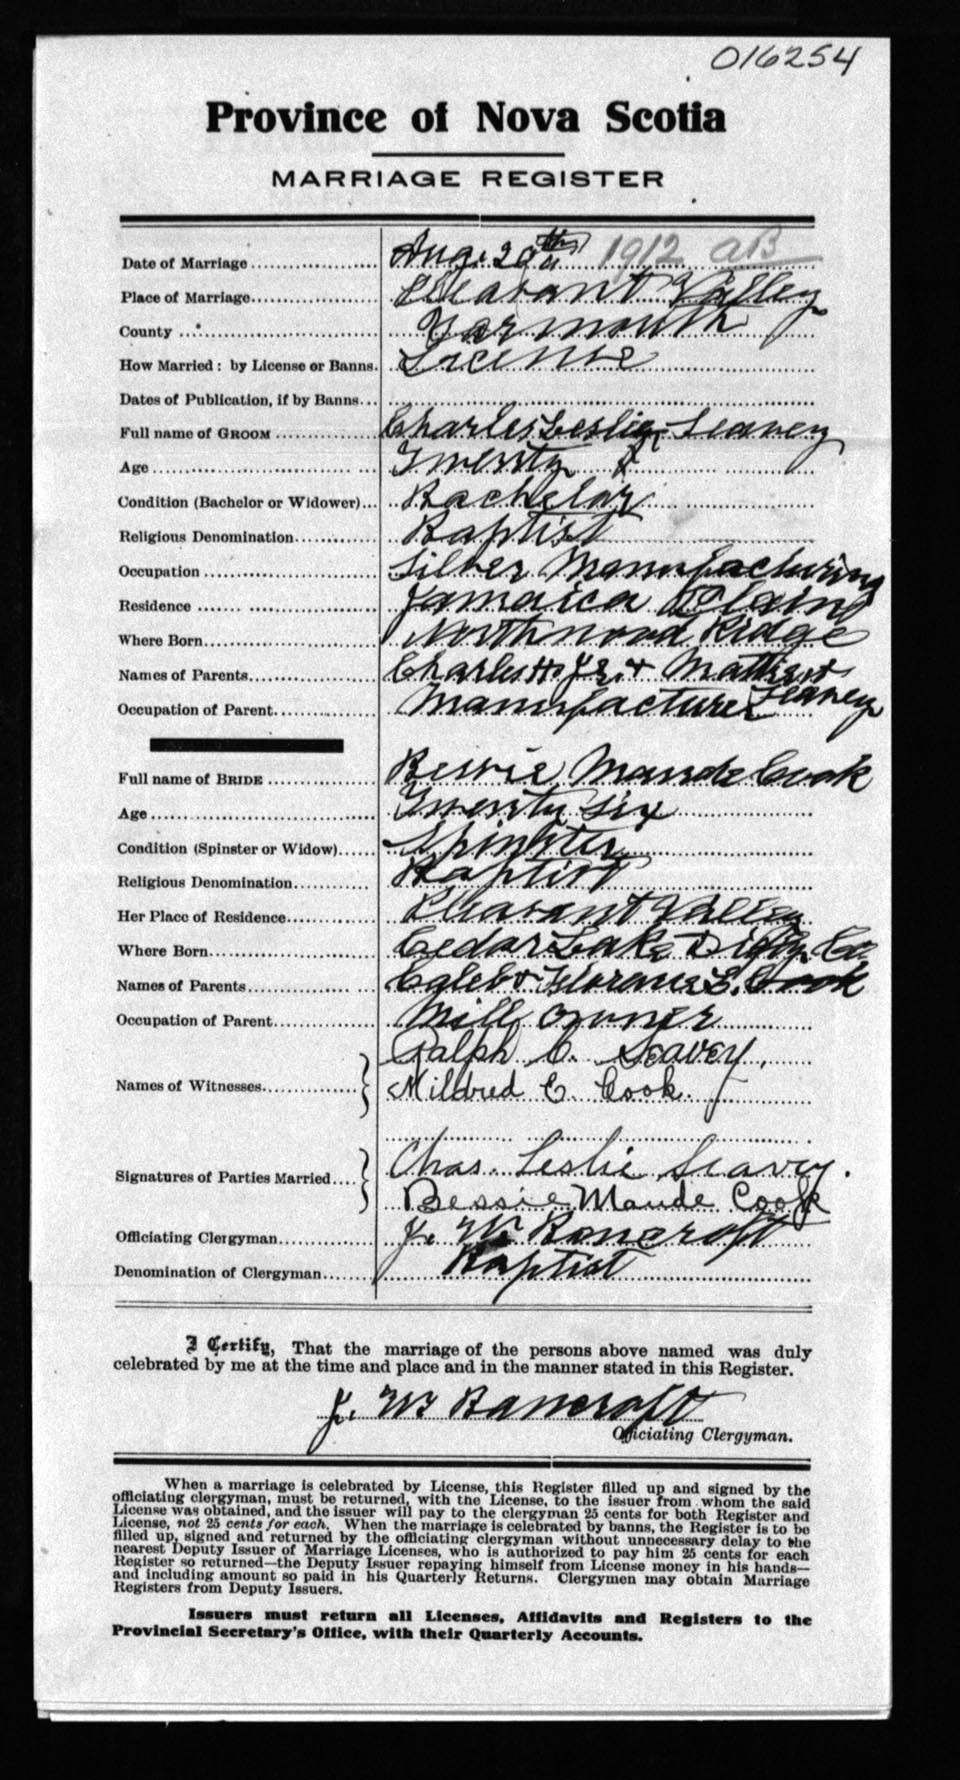 016254
Province of Nova Scotia
MARRIAGE REGISTER
Date of Marriage Aug. 20th 1912 AB
Place of Marriage Pleasant Valley
County Yarmouth
How Married: by License or Banns. License
Dates of Publication, if by Banns
Full name of GROOM Charles Leslie Seavey
Age Twenty
Condition (Bachelor or Widower) Bachelor
Religious Denomination Baptist
Occupation Silver Manufacturing
Residence Jamaica Plain
Where Born Northwood Ridge
Names of Parents Charles H. Jr. + Mattie
Occupation of Parent Manufacturer Seavey
Full name of BRIDE Bessie Maude Cook
Age Twenty six
Condition (Spinster or Widow) Spinster
Religious Denomination Baptist
Her Place of Residence Pleasant Valley
Where Born Cedar Lake Digby Co.
Names of Parents Caleb + Florence E. Cook
Occupation of Parent Mill owner
Names of Witnesses Ralph C. Seavey.
Mildred E. Cook.
Signatures of Parties Married Chas. Leslie Seavey.
Bessie Maude Cook
Officiating Clergyman J. W. Bancroft
Denomination of Clergyman Baptist
I Certify, That the marriage of the persons above named was duly
celebrated by me at the time and place and in the manner stated in this Register.
J. W. Bancroft
Officiating Clergyman.
When a marriage is celebrated by License, this Register filled up and signed by the
officiating clergyman, must be returned, with the License, to the issuer from whom the said
License was obtained, and the issuer will pay to the clergyman 25 cents for both Register and
License, not 25 cents for each. When the marriage is celebrated by banns, the Register is to be
filled up, signed and returned by the officiating clergyman without unnecessary delay to the
nearest Deputy Issuer of Marriage Licenses, who is authorized to pay him 25 cents for each
Register so returned—the Deputy Issuer repaying himself from License money in his hands—
and including amount so paid in his Quarterly Returns. Clergymen may obtain Marriage
Registers from Deputy Issuers.
Issuers must return all Licenses, Affidavits and Registers to the
Provincial Secretary's Office, with their Quarterly Accounts.